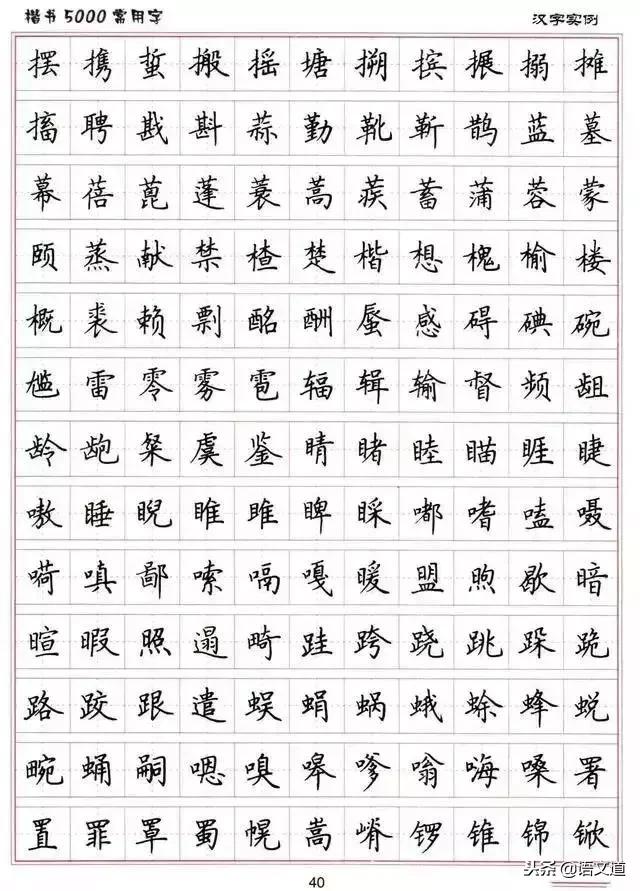 楷书5000常用字 汉字实例
摆 携 蜇 搬 摇 搪 搠 摈 搌 搦 摊
搐 聘 戡 斟 蒜 勤 靴 靳 鹊 蓝 墓
幕 蓓 蓖 蓬 蓑 蒿 蒺 蓄 蒲 蓉 蒙
颐 蒸 献 禁 楂 楚 楷 想 槐 榆 楼
概 裘 赖 剽 酩 酬 蜃 感 碍 碘 碗
尴 雷 零 雾 雹 辐 辑 输 督 频 龃
龄 龅 粲 虞 鉴 睛 睹 睦 瞄 睚 睫
嗷 睡 睨 睢 雎 睥 睬 嘟 嗜 嗑 嗫
嗬 嗔 鄙 嗦 嗝 嘎 暖 盟 煦 歇 暗
暄 暇 照 遢 畸 跬 跨 跷 跳 跺 跪
路 跤 跟 遣 蜈 蜎 蜗 蛾 蜍 蜂 蜕
畹 蛹 嗣 嗯 嗅 嗥 嗲 嗡 嗨 嗓 署
置 罪 罩 蜀 幌 嵩 嵴 锣 锥 锦 锨
头条@语文道
40